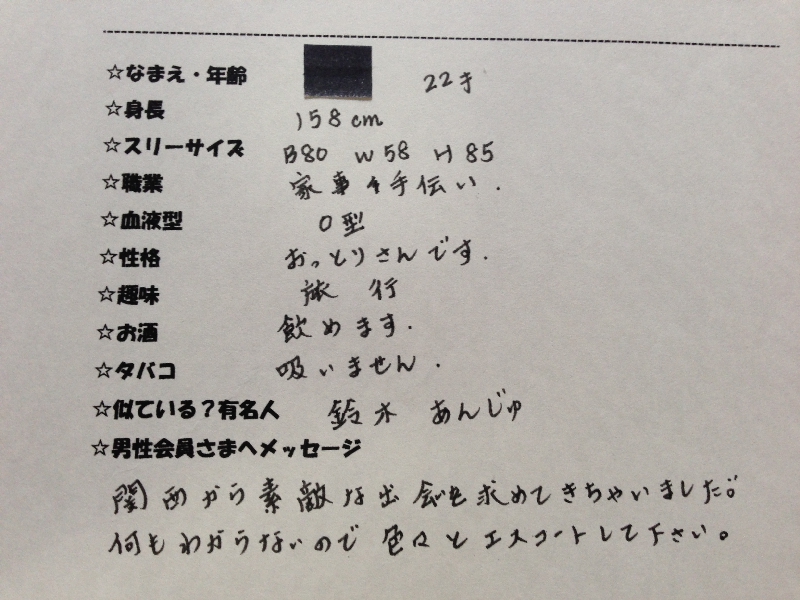 ☆なまえ・年齢 22才
☆身長 158cm
☆スリーサイズ B80 W58 H85
☆職業 家事手伝い.
☆血液型 O型
☆性格 おっとりさんです.
☆趣味 旅行
☆お酒 飲めます.
☆タバコ 吸いません.
☆似ている?有名人 鈴木 あんじゅ
☆男性会員さまへメッセージ
関西から素敵な出会を求めてきちゃいました。
何もわからないので色々とエスコートして下さい。